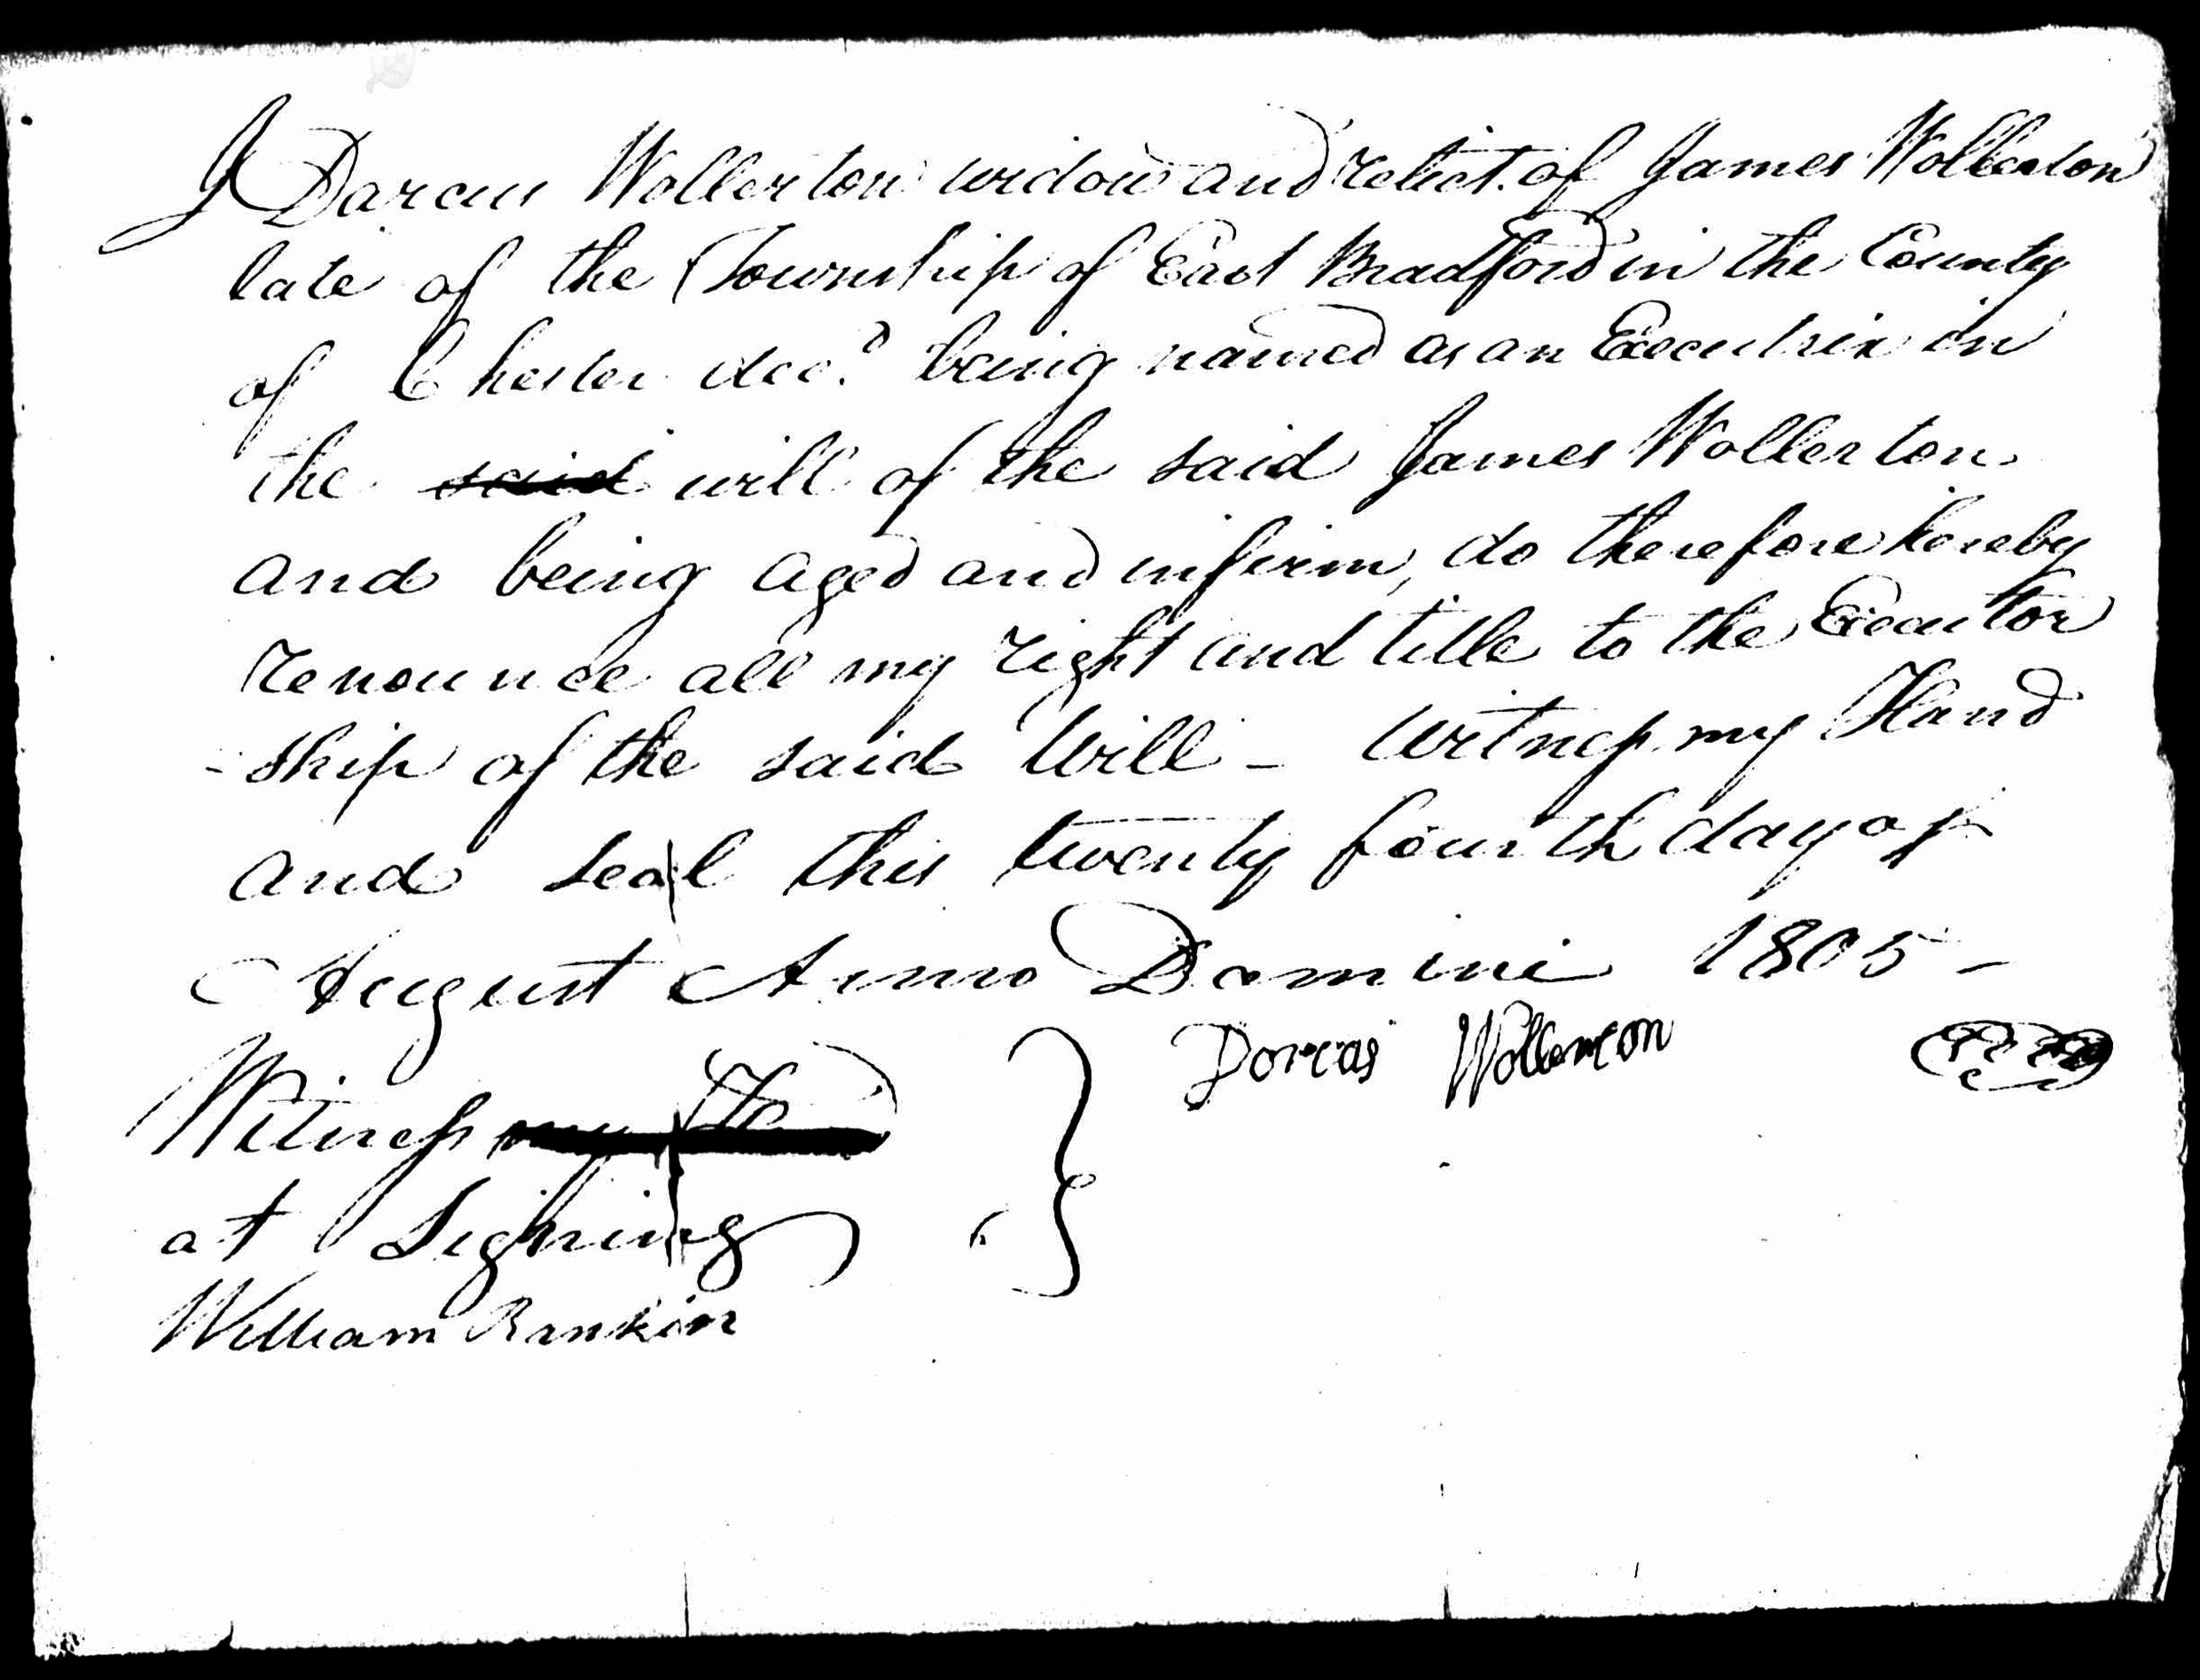 I Darcus Wollerton widow and relict of James Wollerton
late of the Township of East Bradford in the County
of Chester decd. being named as an Executrix in
the said will of the said James Wollerton
and being aged and infirm, do therefore hereby
renounce all my right and title to the Executor
-ship of the said Will - Witness my Hand
and Seal this twenty fourth day of
August Anno Domini 1805 -
Dorcas Wollerton
Witness my Ha
at Signing
William Rankin